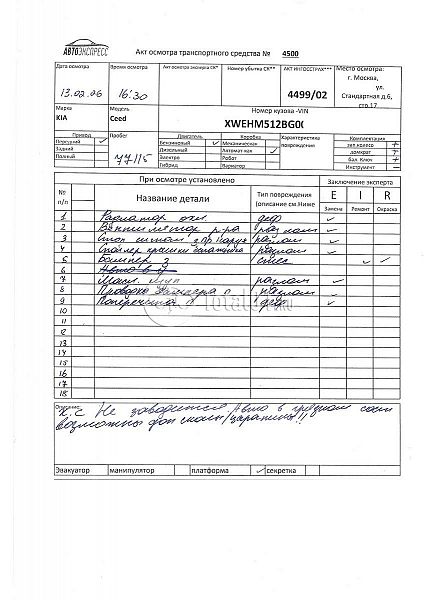 АВТОЭКСПРЕСС
Акт осмотра транспортного средства № 4500
Дата осмотра Время осмотра Акт осмотра эксперта СК* Номер убытка СК** АКТ ИНГОССТРАХ*** Место осмотра:
г. Москва,
ул.
Стандартная д.6,
стр.17
13.02.06 16:30 4499/02
Марка Модель Номер кузова -VIN
KIA Ceed XWEHM512BG0
Привод Пробег Двигатель Коробка Характеристика повреждения Комплектация
Передний ✓ Бензиновый ✓ Механическая зап.колесо +
Задний Дизельный Автомат кая ✓ домкрат +
Полный Электро Робот бал. Ключ +
Гибрид Вариатор Инструмент -
77115
При осмотре установлено Заключение эксперта
№ п/п Название детали Тип повреждения (описание см.Ниже E I R
Замена Ремонт Окраска
1 Радиатор охл. деф ✓
2 Вентилятор р-ра разлом ✓
3 Стоп сигнал з пр наруж разлом ✓
4 Спойлер крышки багажника разлом ✓
5 Бампер З ✓ ✓
6
7 разлом ✓
8 Проводка п разлом ✓
9 Поперечина п деф ✓
10
11
12
13
14
15
16
17
18
Описание:
Не заводится Авто в грязном сост
возможны доп сколы/царапины!!
Эвакуатор манипулятор платформа ✓ секретка